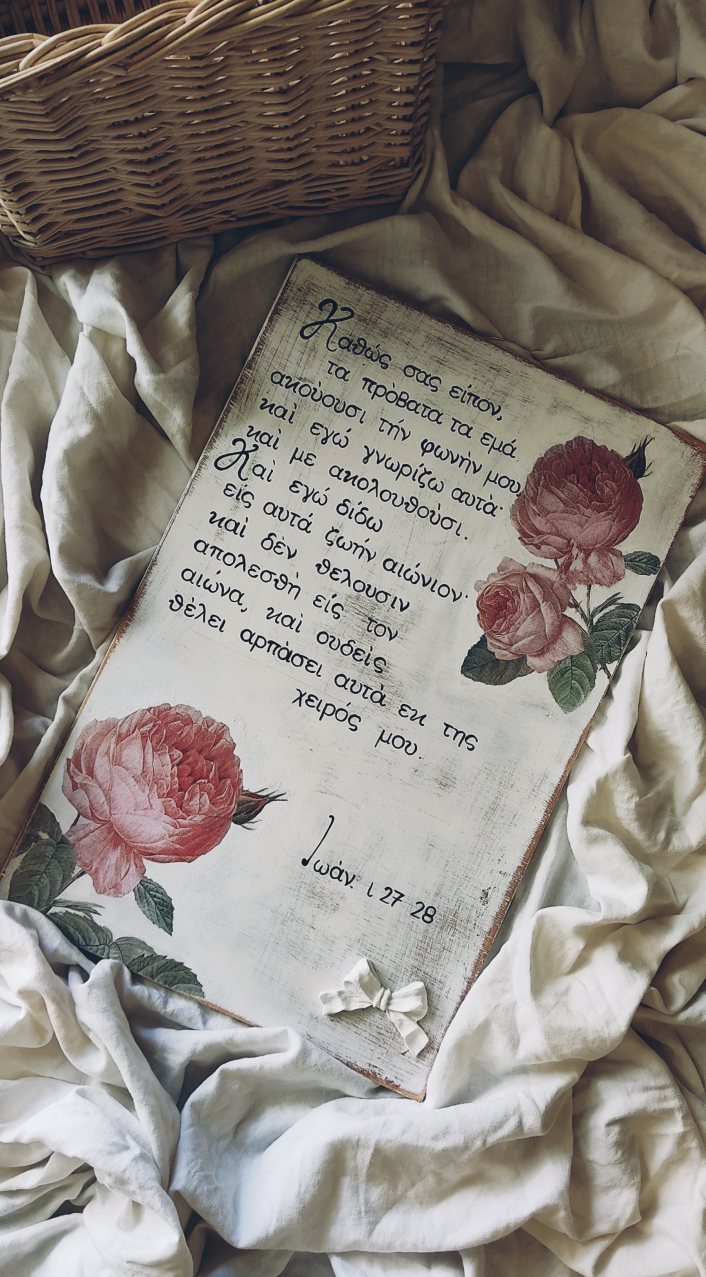 Καθώς σας είπον,
τα πρὸβατα τα εμά
ακοὺουσι τήν φωνὴν μου,
καὶ εγώ γνωρίζω αυτὰ·
καὶ με ακολουθοὺσι.
Καὶ εγώ δίδω
εἰς αυτά ζωήν αιώνιον·
καὶ δὲν θελουσιν
απολεσθὴ εἰς τον
αιώνα, καὶ ουδεὶς
θὲλει αρπὰσει αυτὰ εκ της
χειρός μου.
Ιωάν. ι 27 28